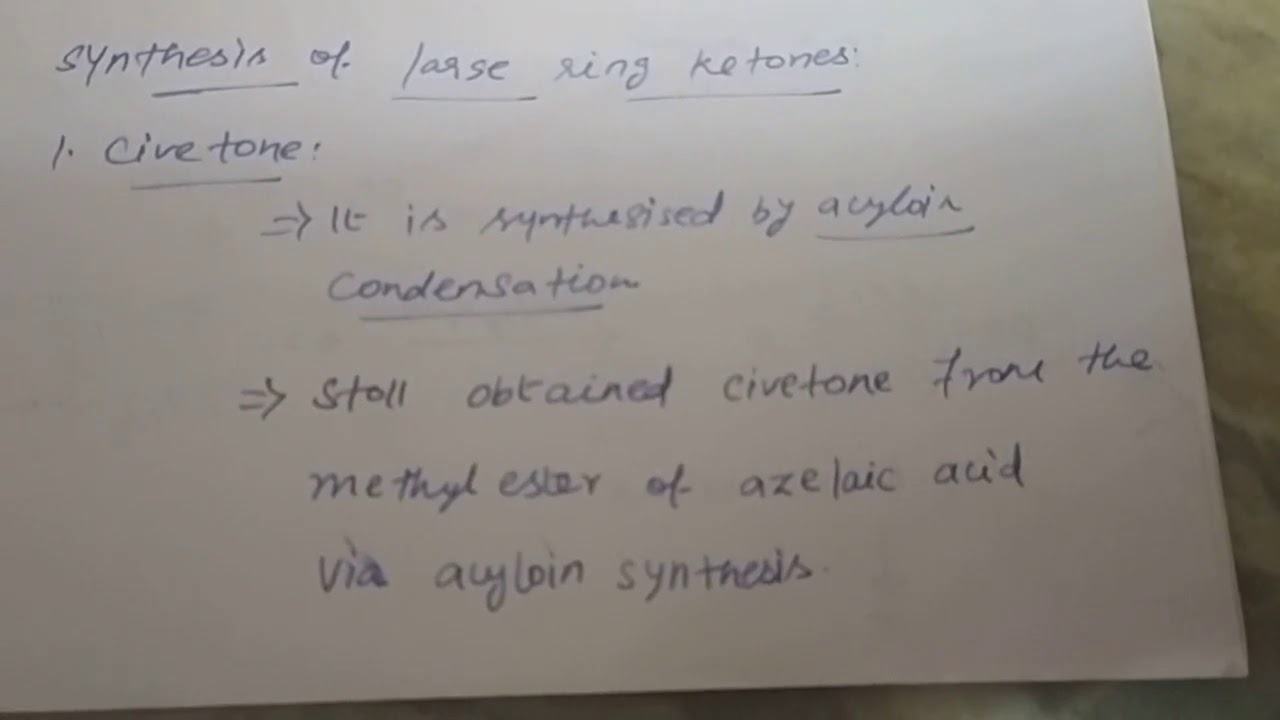 synthesis of larse ring ketones:
1. Civetone:
⇒ It is synthesised by acyloin
Condensation
⇒ Stoll obtained civetone from the
methyl ester of azelaic acid
via acyloin synthesis.